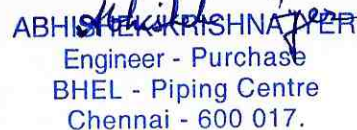 ABHISHEK KRISHNA IYER
Engineer - Purchase
BHEL - Piping Centre
Chennai - 600 017.